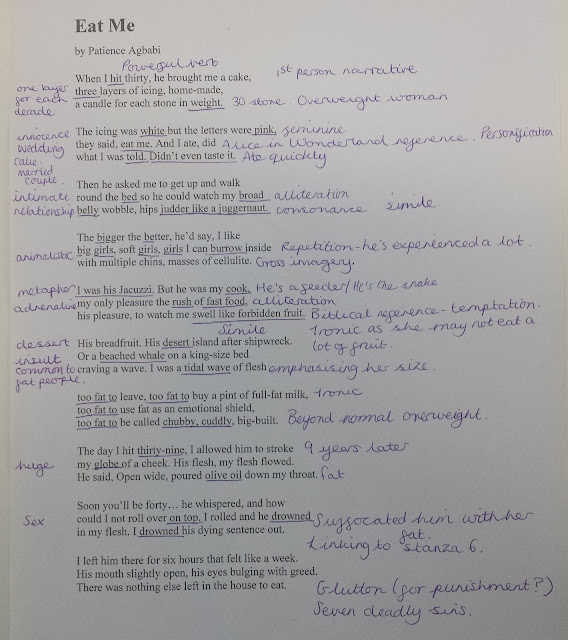 Eat Me
by Patience Agbabi
Powerful verb
When I hit thirty, he brought me a cake, 1st person narrative
one layer for each decade
three layers of icing, home-made,
a candle for each stone in weight. 30 stone. Overweight woman
innocence
wedding cake.
married couple.
The icing was white but the letters were pink, feminine
they said, eat me. And I ate, did Alice in Wonderland reference. Personification
what I was told. Didn't even taste it. Ate quickly
Then he asked me to get up and walk
intimate relationship
round the bed so he could watch my broad alliteration
belly wobble, hips judder like a juggernaut. consonance simile
The bigger the better, he'd say, I like
animalistic
big girls, soft girls, girls I can burrow inside Repetition - he's experienced a lot.
with multiple chins, masses of cellulite. Gross imagery.
metaphor I was his Jacuzzi. But he was my cook, He's a feeder/He's the snake
adrenaline my only pleasure the rush of fast food, alliteration
his pleasure, to watch me swell like forbidden fruit. Biblical reference - temptation.
Simile Ironic as she may not eat a lot of fruit.
dessert His breadfruit. His desert island after shipwreck.
insult common to fat people.
Or a beached whale on a king-size bed
craving a wave. I was a tidal wave of flesh emphasising her size.
too fat to leave, too fat to buy a pint of full-fat milk, Ironic
too fat to use fat as an emotional shield,
too fat to be called chubby, cuddly, big-built. Beyond normal overweight.
The day I hit thirty-nine, I allowed him to stroke 9 years later
huge my globe of a cheek. His flesh, my flesh flowed.
He said, Open wide, poured olive oil down my throat. fat
Soon you'll be forty… he whispered, and how
Sex could I not roll over on top. I rolled and he drowned Suffocated him with her fat.
in my flesh. I drowned his dying sentence out.
Linking to stanza 6.
I left him there for six hours that felt like a week.
His mouth slightly open, his eyes bulging with greed.
There was nothing else left in the house to eat. Glutton (for punishment?)
Seven deadly sins.